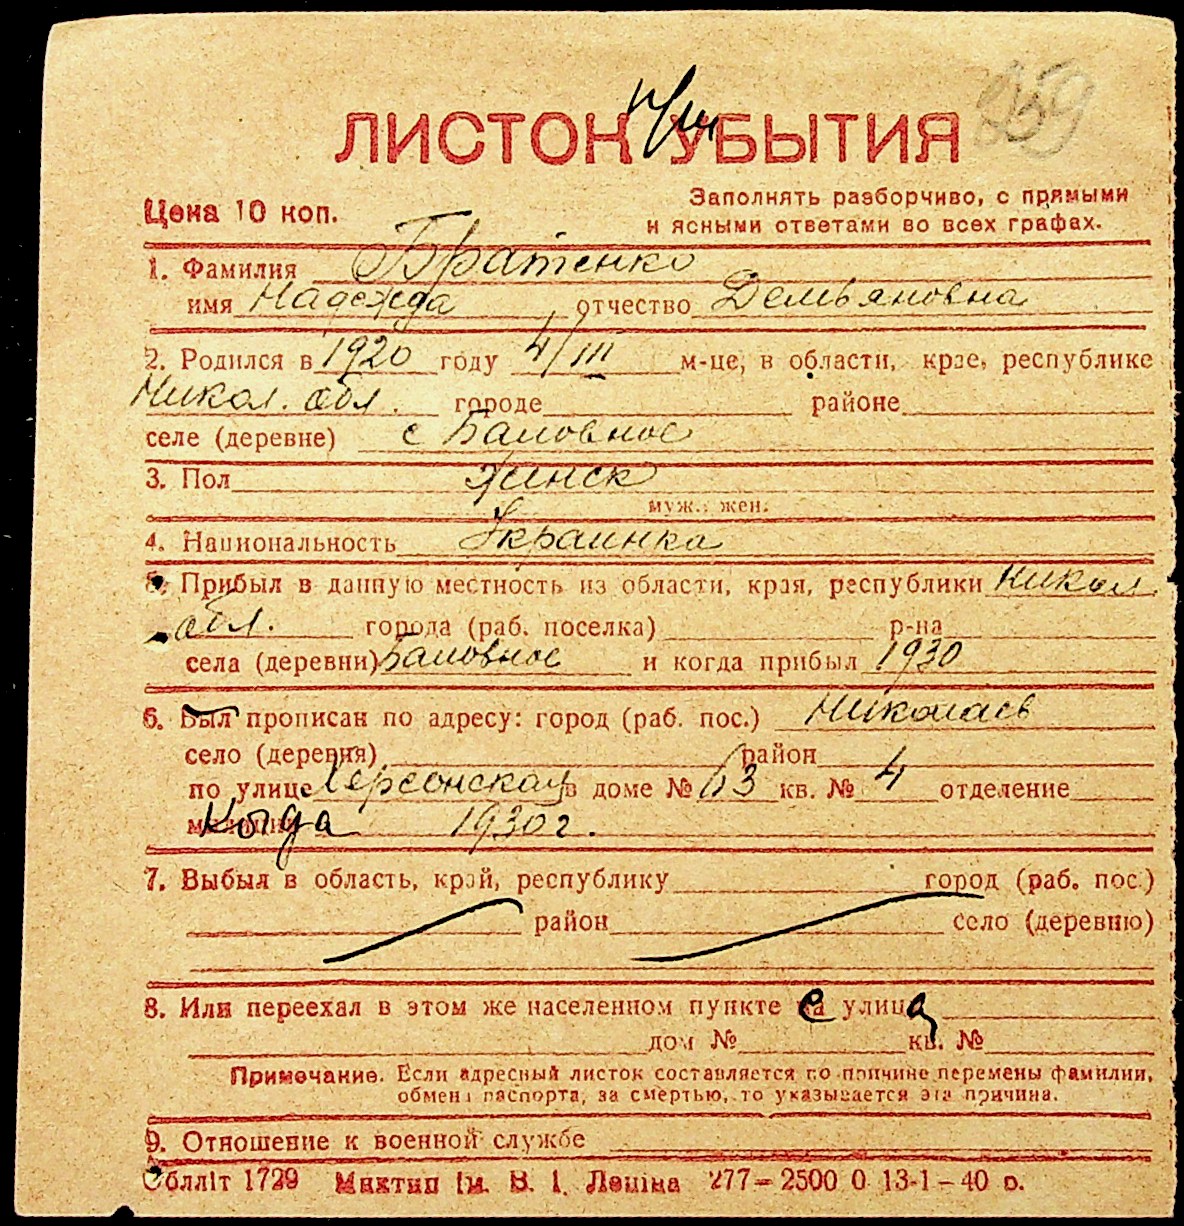 259
ЛИСТОК УБЫТИЯ
Цена 10 коп.
Заполнять разборчиво, с прямыми
и ясными ответами во всех графах.
1. Фамилия Братенко
имя Надежда отчество Демьяновна
2. Родился в 1920 году 4/III м-це, в области, крае, республике
Никол. обл. городе районе
селе (деревне) с Баловное
3. Пол женск
муж., жен.
4. Национальность Украинка
5. Прибыл в данную местность из области, края, республики Никол.
обл. города (раб. поселка) р-на
села (деревни) Баловное и когда прибыл 1930
6. Был прописан по адресу: город (раб. пос.) Николаев
село (деревня) район
по улице Херсонская в доме № 63 кв. № 4 отделение
Когда 1930 г.
7. Выбыл в область, край, республику город (раб. пос.)
район село (деревню)
8. Или переехал в этом же населенном пункте с улица
дом № кв. №
Примечание. Если адресный листок составляется по причине перемены фамилии,
обмена паспорта, за смертью, то указывается эта причина.
9. Отношение к военной службе
Облліт 1729 Миктип ім. В. І. Леніна 277—2500 0 13-1-40 р.